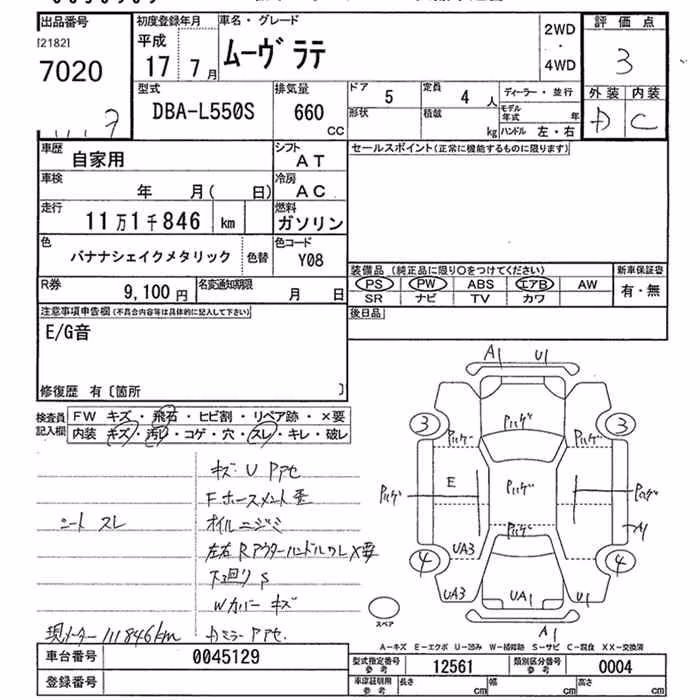 出品番号 初度登録年月 車名・グレード 2WD・4WD 評価点
[2182] 7020 平成17 7月 ムーヴラテ 3
型式 排気量 ドア 定員 ディーラー・並行 外装 内装
DBA-L550S 660 CC 5 4人 C
形状 積載 kg モデル年式 年
ハンドル 左・右
車歴 自家用 シフト AT セールスポイント(正常に機能するものに限ります)
車検 年 月( 日) 冷房 AC
走行 11万1千846 km 燃料 ガソリン
色 バナナシェイクメタリック 色替 色コード Y08
装備品(純正品に限り○をつけてください) 新車保証書
PS PW ABS エアB AW 有・無
SR ナビ TV カワ
R券 9,100円 名変通知期限 月 日
後日品
注意事項申告欄(不具合内容等は具体的に記入して下さい)
E/G音
修復歴 有〔箇所 〕
検査員記入欄 FW キズ・飛石・ヒビ割・リペア跡・×要
内装 キズ・汚れ・コゲ・穴・スレ・キレ・破レ
キズ U アセ
シート スレ
オイルニジミ
左右Rアウターハンドルのレ×要
下回り S
Wカバー キズ
現メーター111846km
A1 U1
3 3
E
A1
UA3
4 4
UA3 UA1 U1
A1
スペア
A-キズ E-エクボ U-凹み W-補修跡 S-サビ C-腐食 XX-交換済
車台番号 0045129
登録番号
型式指定番号参考 12561 類別区分番号参考 0004
車庫証明用参考 長さ cm 幅 cm 高さ cm